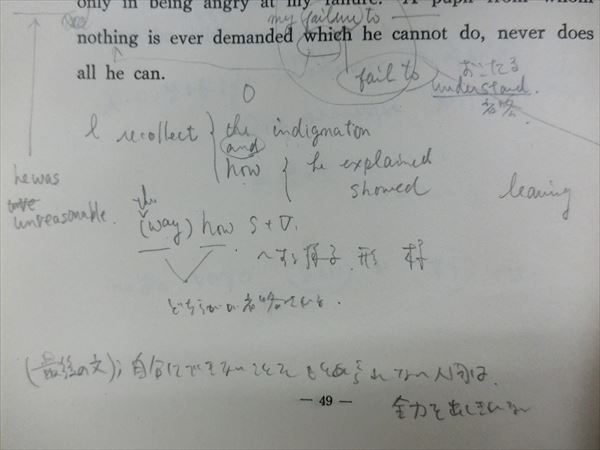 only in being angry at my failure. A pupil from whom
my failure to
nothing is ever demanded which he cannot do, never does
all he can.
fail to おこたる
understand
省略
O
I recollect the indignation
and
how he explained
showed
leaving
he was
unreasonable.
the
(way) how S+V.
〜する様子、形
どちらかが省略されている.
(最後の文); 自分にできないことを もとめられない人間は
全力を出しきらない
— 49 —